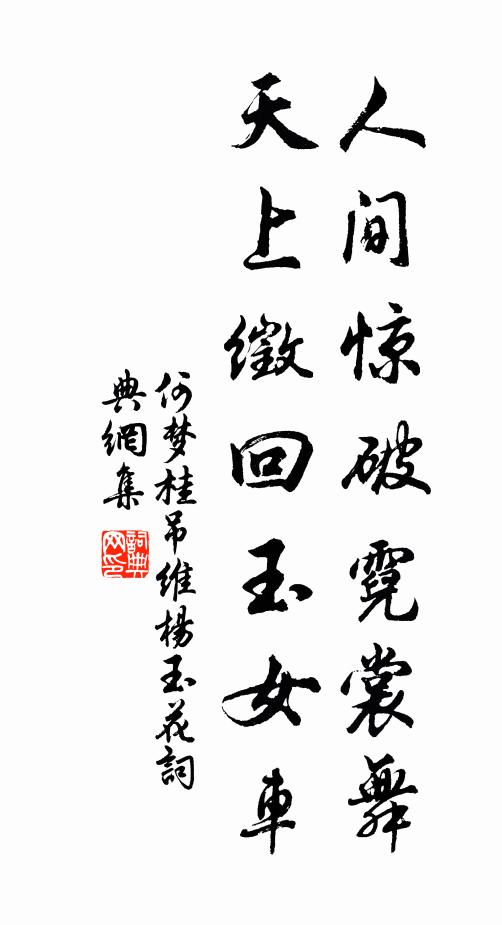 人间惊破霓裳舞
天上徵回玉女車
何梦桂吊维楊玉花詞
典網集
詞典
网印